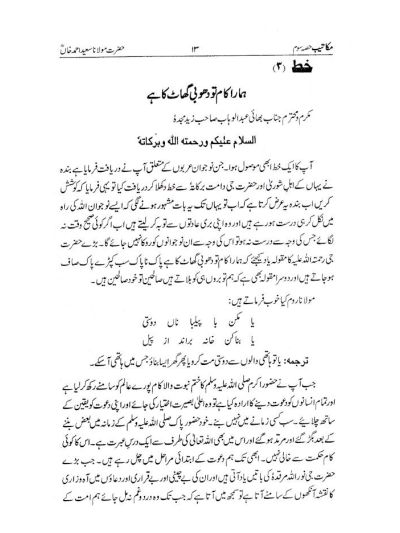 مکاتیب حصہ سوم ۱۳ حضرت مولانا سعید احمد خانؒ
خط (۳)
ہمارا کام تو دھوبی گھاٹ کا ہے
مکرم و محترم جناب بھائی عبدالوہاب صاحب زید مجدہٗ
السلام علیکم ورحمتہ اللہ وبرکاتہ
آپ کا ایک خط ابھی موصول ہوا۔ جن نوجوان عربوں کے متعلق آپ نے دریافت فرمایا ہے بندہ
نے یہاں کے اہل شوریٰ اور حضرت جی دامت برکاتہٗ سے خط دکھلا کر دریافت کیا تو یہی فرمایا کہ کوشش
کریں اب بندہ یہ عرض کرتا ہے کہ اب تو یہاں تک یہ بات مشہور ہونے لگی کہ ایسے نوجوان اللہ کی راہ
میں نکل کر ہی درست ہو رہے ہیں اور وہ اپنی بری عادتوں سے توبہ کر لیتے ہیں اب اگر کوئی صحیح وقت نہ
لگائے جس کی وجہ سے درست نہ ہو تو اس کی وجہ سے ان نوجوانوں کو روکا نہیں جائے گا۔ بڑے حضرت
جی رحمتہ اللہ علیہ کا مقولہ یاد کیجئے کہ ہمارا کام تو دھوبی گھاٹ کا ہے پاک ناپاک سب کپڑے پاک صاف
ہو جاتے ہیں اور دوسرا مقولہ بھی ہے کہ ہم تو بروں ہی کو بلاتے ہیں صالحین تو خود صالحین ہیں۔
مولانا رومؒ کیا خوب فرماتے ہیں:
یا مکن با پیلباں دوستی
یا بناکن خانہ براند از پیل
ترجمہ: یا تو ہاتھی والوں سے دوستی مت کرو یا پھر گھر ایسا بناؤ جس میں ہاتھی آ سکے۔
جب آپ نے حضور اکرم صلی اللہ علیہ وسلم کا ختم نبوت والا کام پورے عالم کو سامنے رکھ کر لیا ہے
اور تمام انسانوں کو دعوت دینے کا ارادہ کیا ہے تو وہ اعلیٰ بصیرت اختیار کی جائے اور اپنی دعوت کو یقین کے
ساتھ چلائے۔ سب کسی زمانے میں نہیں بنے۔ خود حضور پاک صلی اللہ علیہ وسلم کے زمانہ میں بعض بنے
کے بعد بگڑ گئے اور مرتد ہو گئے اور اس میں بھی اللہ تعالیٰ کی طرف سے ایک درس عبرت ہے۔ اس کا کوئی
کام حکمت سے خالی نہیں۔ ابھی تک ہم دعوت کے ابتدائی مراحل میں چل رہے ہیں۔ جب بڑے
حضرت جی نور اللہ مرقدہٗ کی باتیں یاد آتی ہیں اور ان کی بے چینی اور بے قراری اور دعاؤں میں آہ وزاری
کا نقشہ آنکھوں کے سامنے آتا ہے تو سمجھ میں آتا ہے کہ جب تک وہ درد و غم نہ مل جائے ہم امت کے